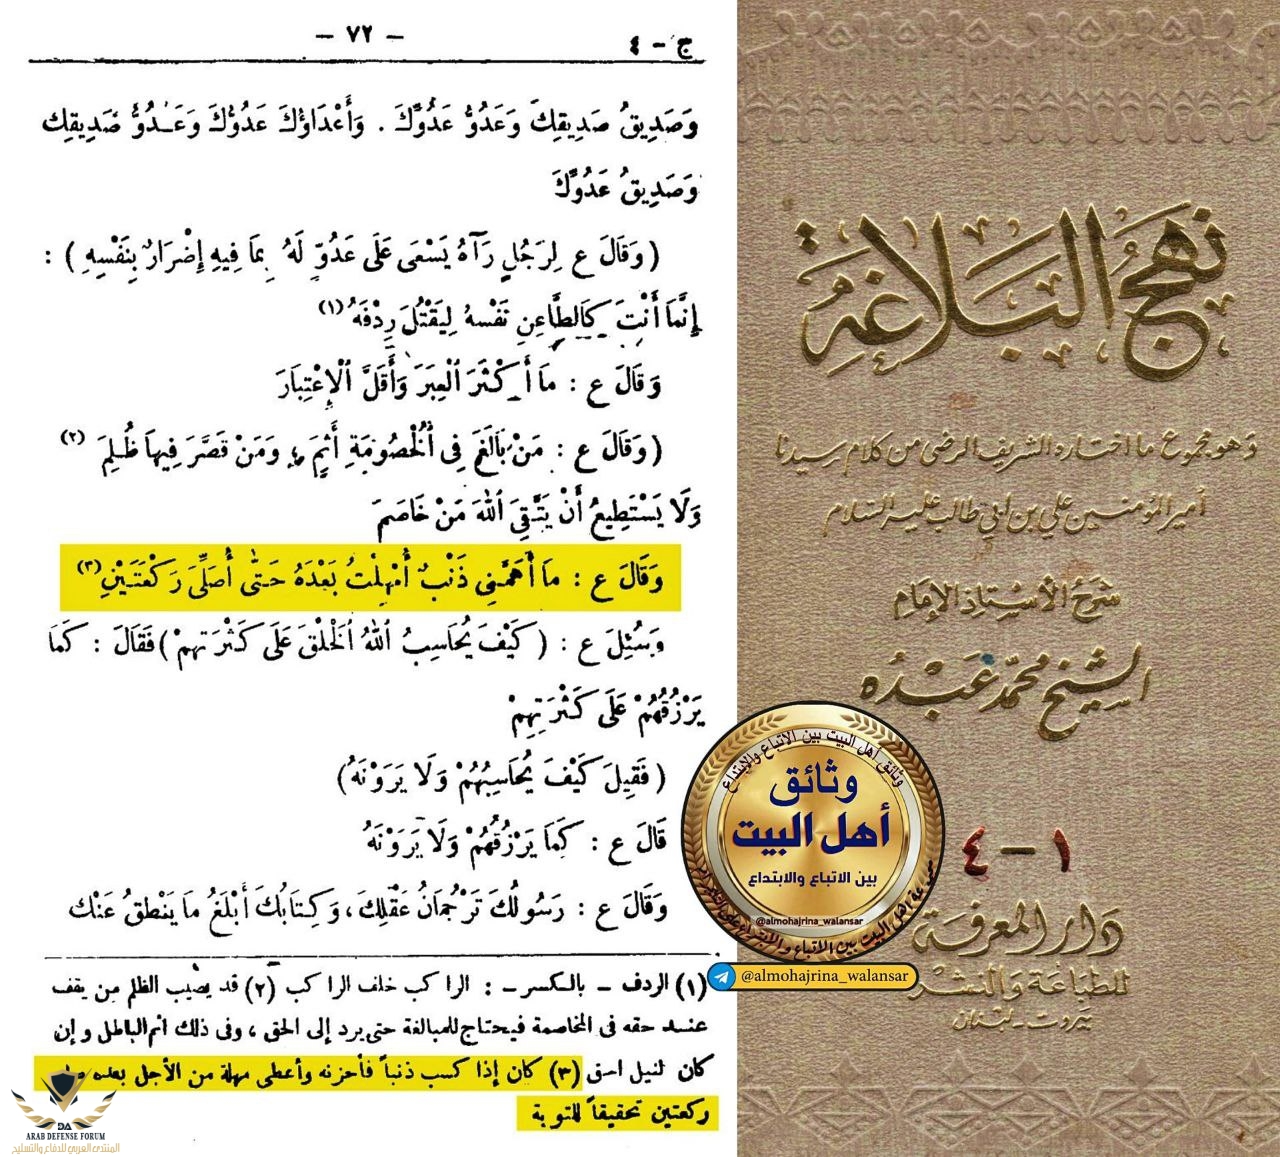 ج - ٤
- ٧٢ -
وَصَدِيقُ صَدِيقِكَ وَعَدُوُّ عَدُوِّكَ . وَأَعْدَاؤُكَ عَدُوُّكَ وَعَدُوُّ صَدِيقِكَ
وَصَدِيقُ عَدُوِّكَ
( وَقَالَ ع لِرَجُلٍ رَآهُ يَسْعَى عَلَى عَدُوٍّ لَهُ بِمَا فِيهِ إِضْرَارٌ بِنَفْسِهِ ) :
إِنَّمَا أَنْتَ كَالطَّاعِنِ نَفْسَهُ لِيَقْتُلَ رِدْفَهُ (١)
وَقَالَ ع : مَا أَكْثَرَ الْعِبَرَ وَأَقَلَّ الْإِعْتِبَارَ
( وَقَالَ ع : مَنْ بَالَغَ فِى الْخُصُومَةِ أَثِمَ ، وَمَنْ قَصَّرَ فِيهَا ظُلِمَ (٢)
وَلَا يَسْتَطِيعُ أَنْ يَتَّقِىَ اللهَ مَنْ خَاصَمَ
وَقَالَ ع : مَا أَهَمَّنِى ذَنْبٌ أُمْهِلْتُ بَعْدَهُ حَتَّى أُصَلِّىَ رَكْعَتَيْنِ (٣)
وَسُئِلَ ع : ( كَيْفَ يُحَاسِبُ اللهُ الْخَلْقَ عَلَى كَثْرَتِهِمْ ) فَقَالَ : كَمَا
يَرْزُقُهُمْ عَلَى كَثْرَتِهِمْ
( فَقِيلَ كَيْفَ يُحَاسِبُهُمْ وَلَا يَرَوْنَهُ )
قَالَ ع : كَمَا يَرْزُقُهُمْ وَلَا يَرَوْنَهُ
وَقَالَ ع : رَسُولُكَ تَرْجُمَانُ عَقْلِكَ ، وَكِتَابُكَ أَبْلَغُ مَا يَنْطِقُ عَنْكَ
(١) الردف - بالكسر - : الراكب خلف الراكب (٢) قد يصيب الظلم من يقف
عند حقه فى المخاصمة فيحتاج للمبالغة حتى يرد إلى الحق ، وفى ذلك اثم الباطل وإن
كان لنيل الحق (٣) كان إذا كسب ذنباً فأحزنه وأعطى مهلة من الأجل بعده صلى
ركعتين تحقيقاً للتوبة
نهج البلاغة
وهو مجموع ما اختاره الشريف الرضى من كلام سيدنا
أمير المؤمنين علي بن أبي طالب عليه السلام
شرح الأستاذ الإمام
الشيخ محمد عبده
١ - ٤
دار المعرفة
للطباعة والنشر
بيروت - لبنان
وثائق أهل البيت بين الاتباع والابتداع
وثائق
أهل البيت
بين الاتباع والابتداع
@almohajrina_walansar
@almohajrina_walansar
DA
ARAB DEFENSE FORUM
المنتدى العربي للدفاع والتسليح